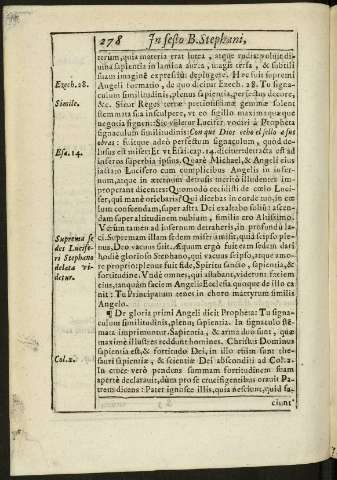 278 In festo B. Stephani,
terum, quia materia erat lutea, atque rudis: voluit di-
uina sapientia in lamina aurea, magis tersa, & subtili
suam imaginē expressiùs depingere. Hęc fuit supremi
Ezech. 28.
Angeli formatio, de quo dicitur Ezech. 28. Tu signa-
culum similitudinis, plenus sapientia, perfectus decore,
Simile.
&c. Sicut Reges
stemmata sua insculpere, vt eo sigillo maxima quæque
negotia signent: Sic Lucifer. vocari à Propheta
signaculum similitudinis: Con que Dios echo el sello a sus
obras: fuitque adeò perfectum signaculum, quòd de-
Esa. 14.
Et Esai. cap. 14. dicitur detracta est ad
inferos superbia ipsius. Quarè Michael, & Angeli eius
iactato Lucifero cum complicibus Angelis in infer-
num, atque in æternùm detrusis meritò illudentes im-
properant dicentes: Quomodò cecidisti de cœlo Luci-
fer, qui manè oriebaris? Qui dicebas in corde tuo, in cœ
lum conscendam, super astra Dei exaltabo solium: ascen-
dam super altitudinem nubium, similis ero Altissimo.
Verùm tamen ad infernum detraheris, in profundũ la-
Suprema se
des Lucife-
ri Stephano
delata vi-
detur.
ci. Supremam illam sedem miser amisit, quia seipso ple-
nus, Deo vacuus fuit. Æquum ergò fuit eam sedem dari
hodiè glorioso Stephano, qui vacuus seipso, atque amo-
re proprio: plenus fuit fide, Spiritu sancto, sapientia, &
fortitudine. Vndè omnes, qui astabant, viderunt faciem
eius, tanquàm faciem Angeli: Ecclesia quoque de illo ca
nit: Tu Principatum tenes in choro martyrum similis
Angelo.
¶ De gloria primi Angeli dicit Propheta: Tu signa-
culum similitudinis, plenus sapientia. In signaculo stẽ-
mata imprimuntur. Sapientia, & arma duo sunt, quæ
maximè illustres reddunt homines. Christus Dominus
sapientia est, & fortitudo Dei, in illo etiàm sunt the-
Col. 2.
sauri sapientiæ, & scientiæ Dei absconditi ad Col. 2.
In cruce verò pendens summam fortitudinem suam
apertè declarauit, dùm pro se crucifigentibus orauit Pa
trem dicens: Pater ignosce illis, quia nesciunt, quid fa-
ciunt